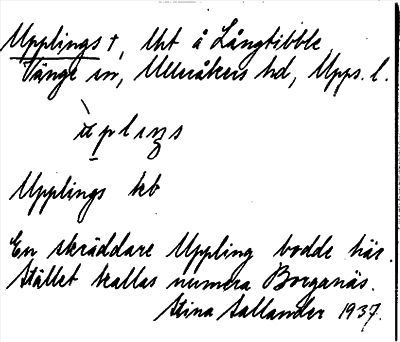 Upplings †, lht å Långtibble
Vänge sn, Ulleråkers hd, Upps. l.
Upplings kb
En skräddare Uppling bodde här.
Stället kallas numera Borganäs.
Stina Sallander 1937.